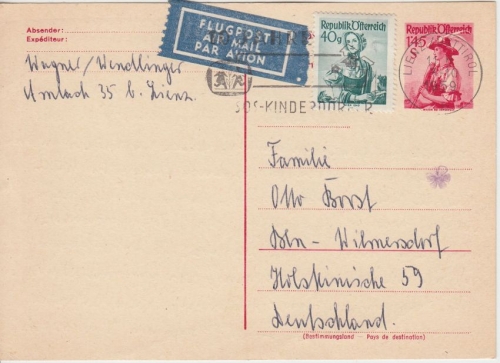 Absender:
Expéditeur:
Wagner/Wendlinger
Amlach 35 b. Lienz.
FLUGPOST
AIR MAIL
PAR AVION
Republik Österreich
40g
Republik Österreich
1.45
TIROL
SOS-KINDERDÖRFER
Familie
Otto Borst
Bln - Wilmersdorf
Holsteinische 59
Deutschland.
(Bestimmungsland - Pays de destination)